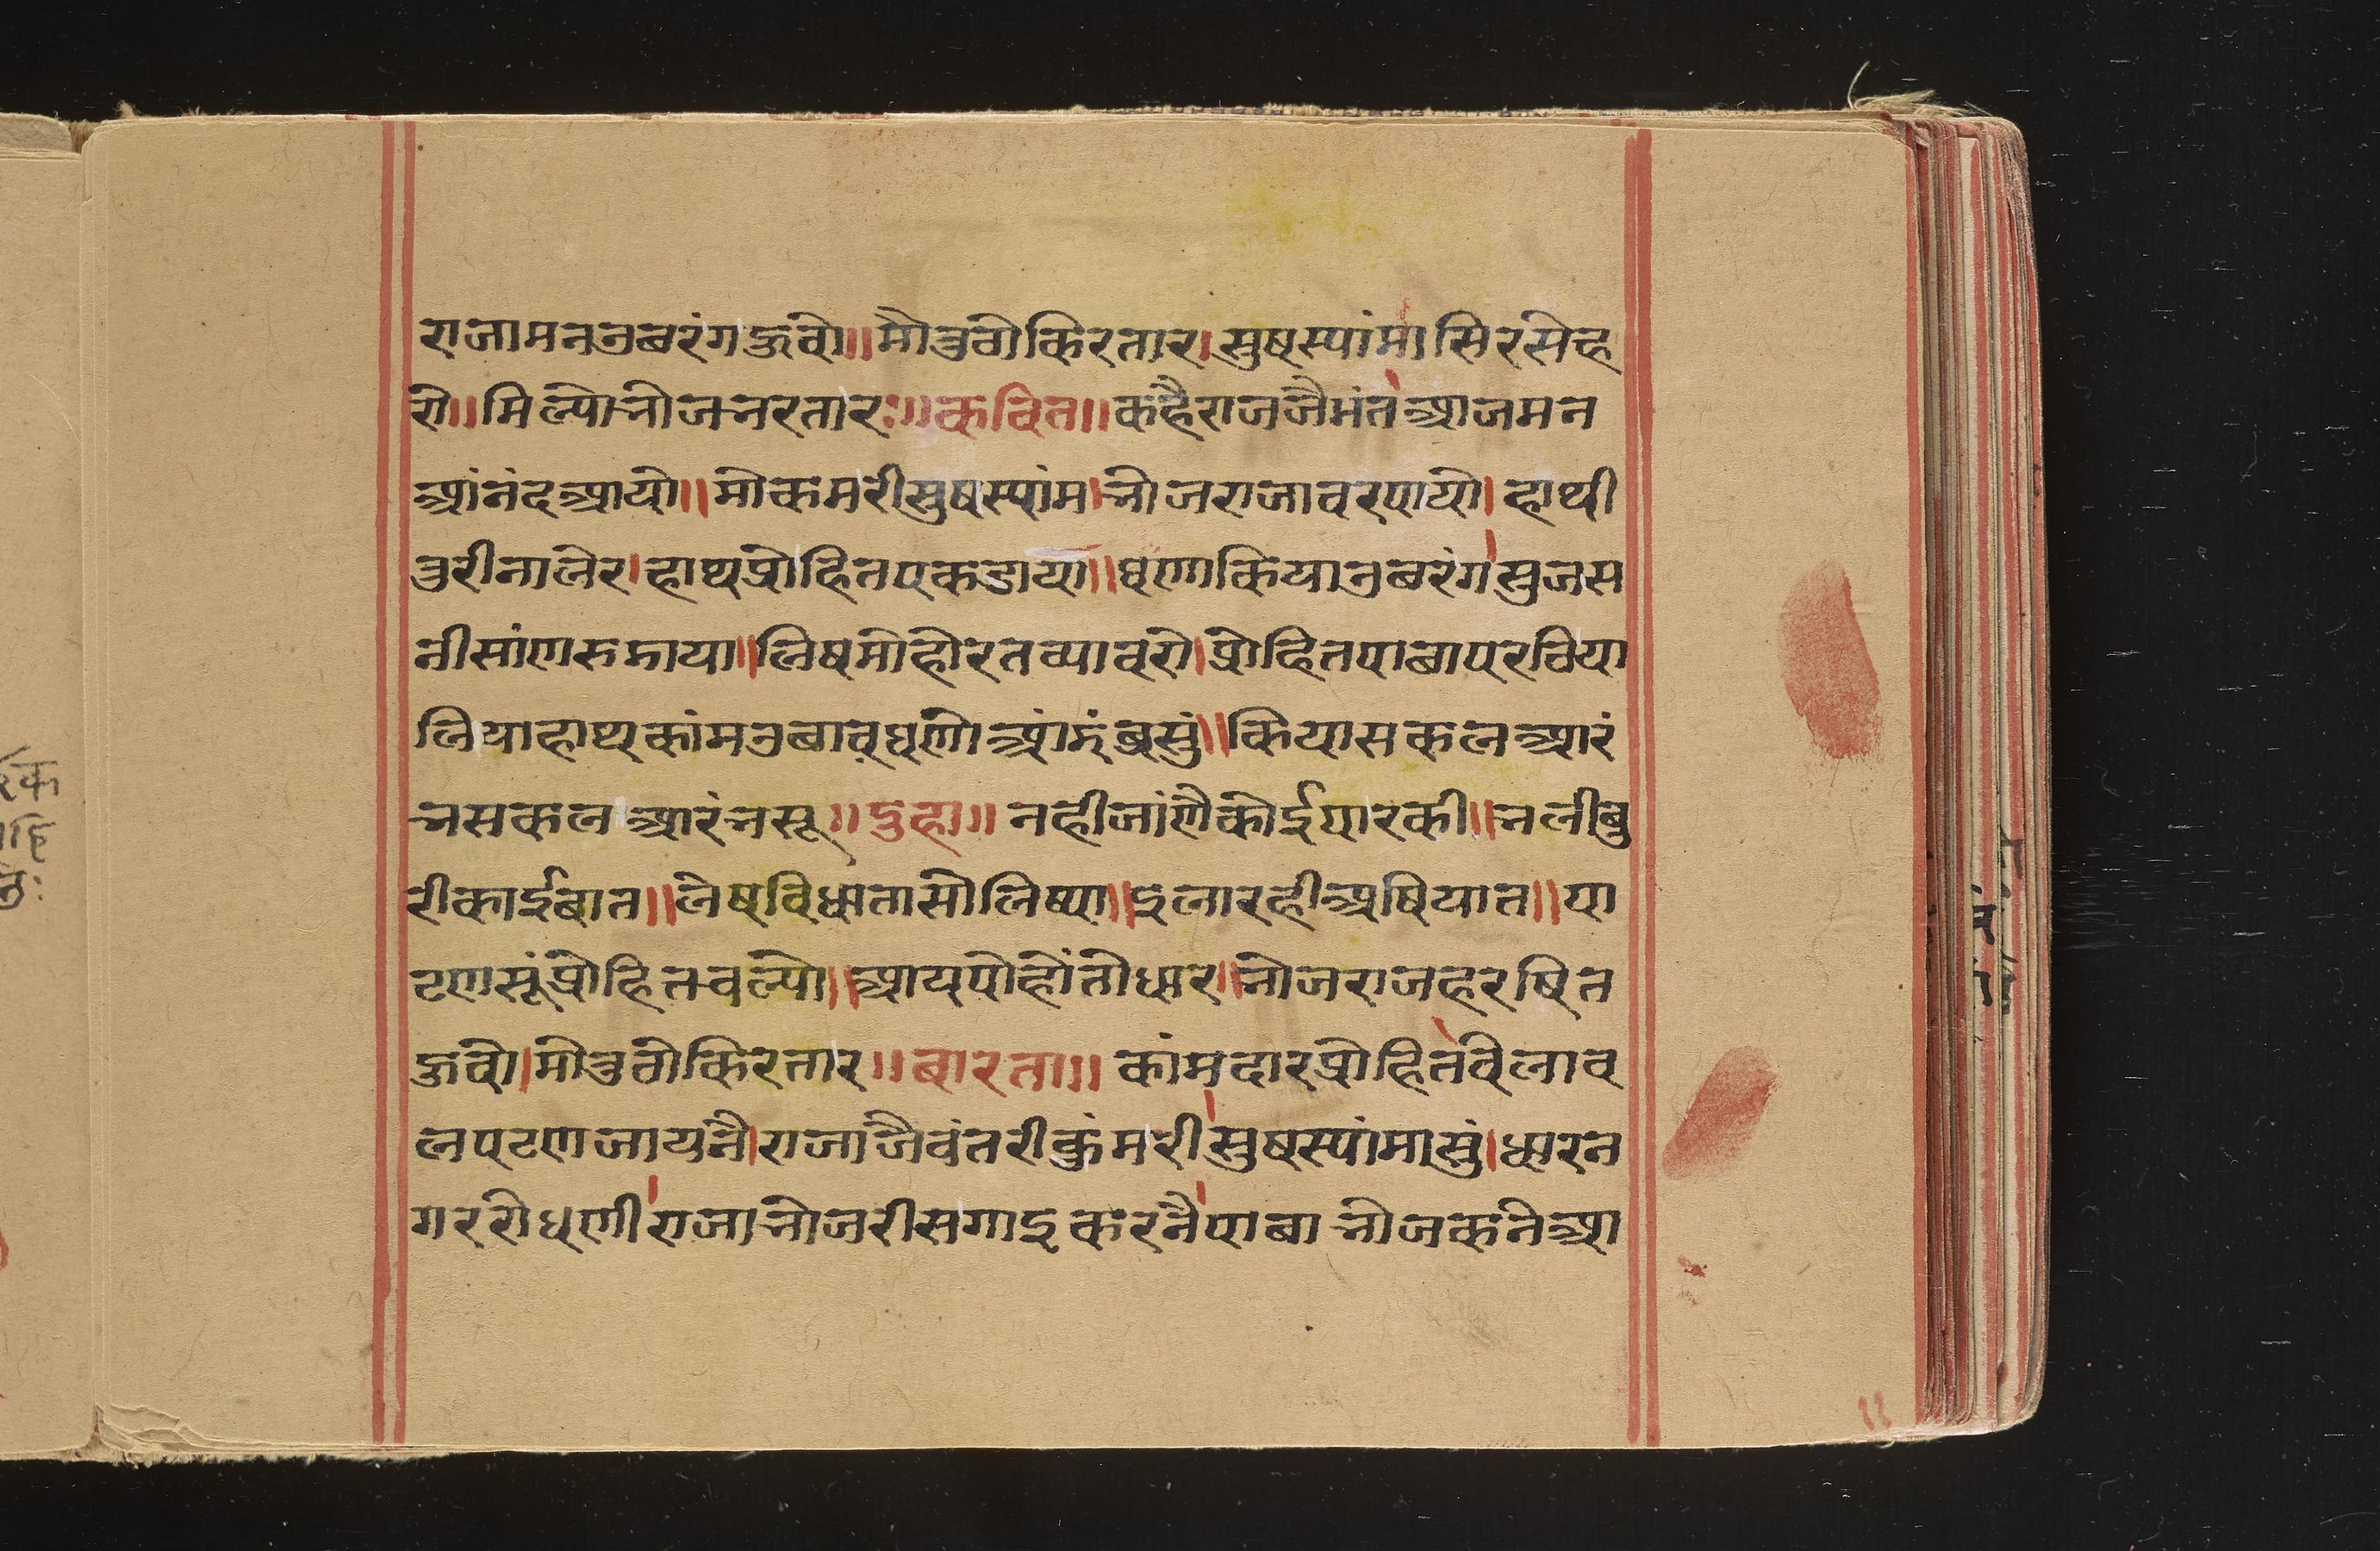 राजा मन उबरंग हूवो ॥ मो तुठो किरतार । सुष स्यांमा सिर सेह
रो ॥ मिल्यो भोज भरतारः ॥ कवित ॥ कहै राज जैमंत आज मन
आंनंद आयो ॥ मो कमरी सुष स्यांम । भोज राजा वर पायो । हाथी
तुरी नालेर । हाथ प्रोहित पकडाया ॥ घणा किया उबरंग । सुजस
नीसांण रुडाया ॥ लिष मोहोरत व्याव रो । प्रोहित पाबा परठिया
लिया हाथ कांम उबाव घणो आंडंबर सुं ॥ किया सकल आरं
भ सकल आरंभ सू ॥ दुहा ॥ नही जांणै कोई पारकी ॥ भली बु
री काई बात ॥ लेष विधाता सो लिष्या ॥ इला रही अषियात ॥ पा
टण सूं प्रोहित चल्यो ॥ आय पोहोंतो धार ॥ भोज राज हरषित
हूवो । मो तुठो किरतार ॥ बारता ॥ कांमदार प्रोहित वेलाव
ल पटण जायनै । राजा जैवंत री कुंमरी सुष स्यांमा सुं । धार न
गर रो धणी राजा भोज री सगाइ करनै पाबा भोज कने आ